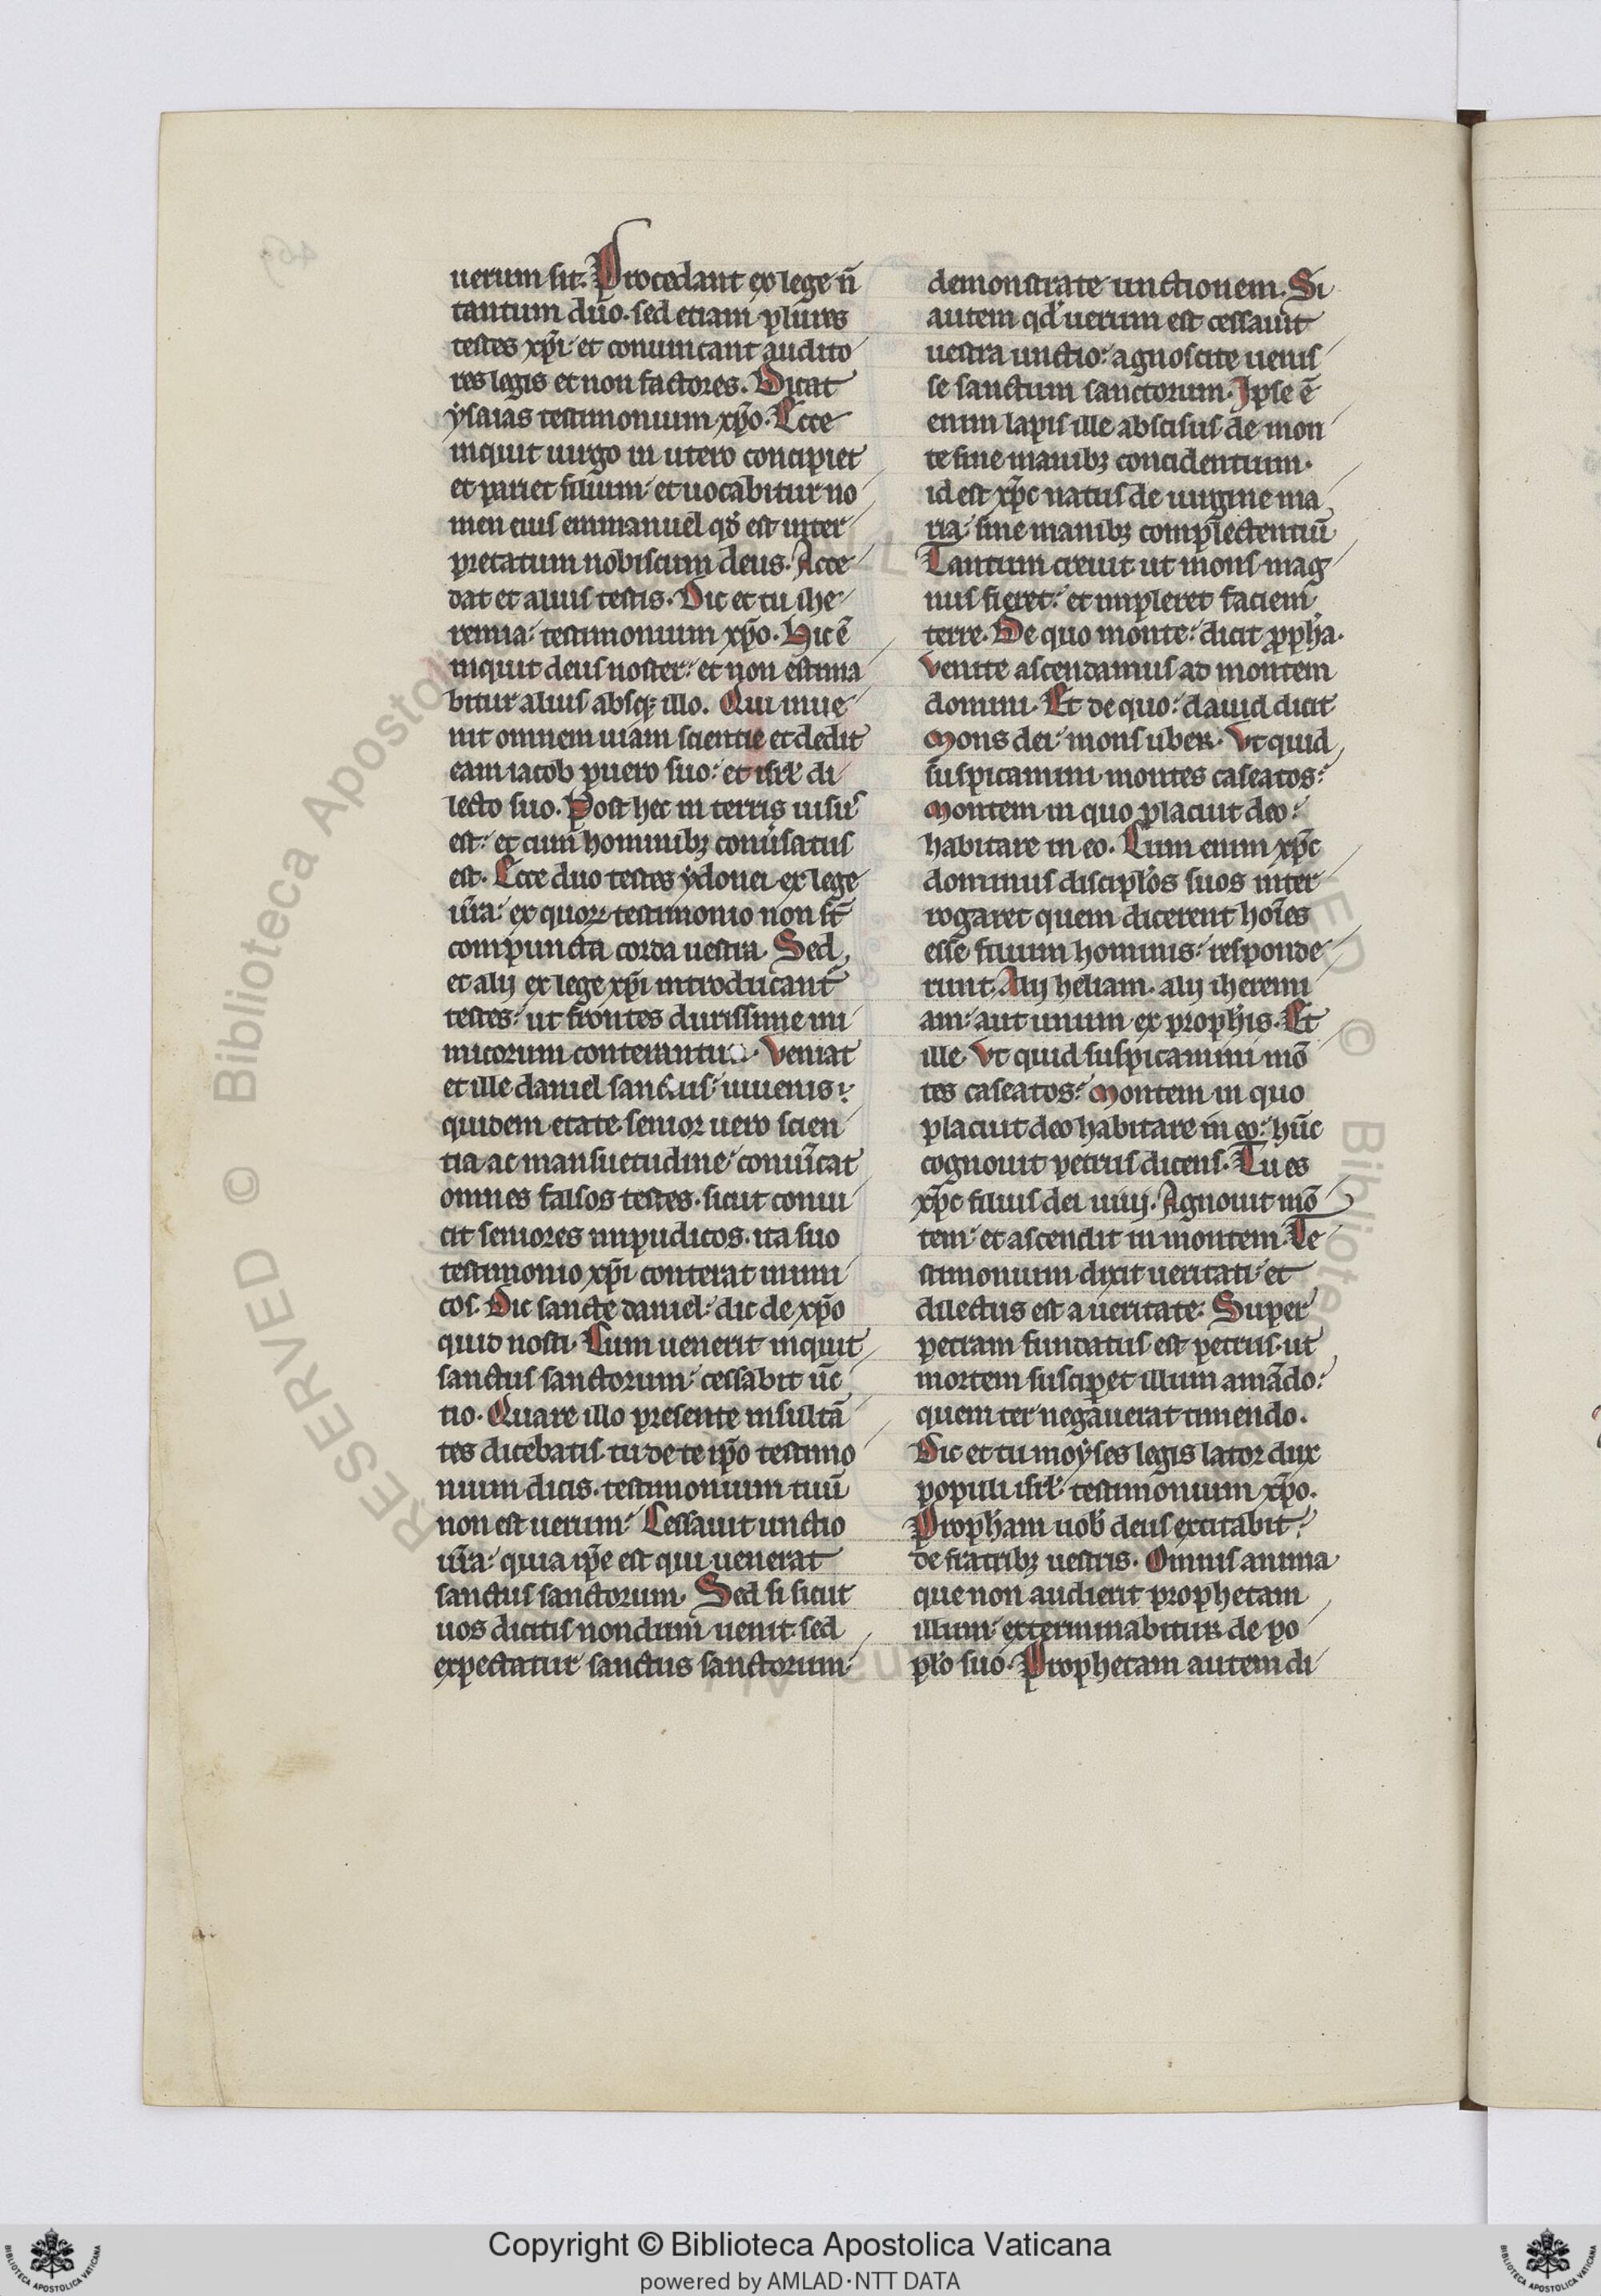 uerum sit. Procedant ex lege n̄
tantum duo. sed etiam plures
testes xp̄i. et conuincant audito
res legis et non factores. Dicat
ẏsaias testimonium xp̄o. Ecce
inquit uirgo in utero concipiet
et pariet filium. et uocabitur no
men eius emmanuel qd̓ est inter
pretatum nobiscum deus. Acce
dat et alius testis. Dic et tu ihe
remia. testimonium xp̄o. Hic ē
inquit deus noster. et non estima
bitur alius absq; illo. Qui inue
nit omnem uiam scientie et dedit
eam iacob puero suo. et isrl̓ di
lecto suo. Post hec in terris uisus
est. et cum hominibꝫ conu̓satus
est. Ecce duo testes ẏdonei ex lege
ur̄a. ex quoꝝ testimonio non st̄
compuncta corda uestra. Sed
et alij ex lege xp̄i introducant̄
testes. ut frontes durissime ini
micorum conterantu. Veniat
et ille daniel sanctus. iuuenis
quidem etate senior uero scien
tia ac mansuetudine. conuīcat
omnes falsos testes. sicut conui
cit seniores impudicos. ita suo
testimonio xp̄i conterat inimi
cos. Dic sancte daniel. dic de xp̄o
quid nosti. Cum uenerit inquit
sanctus sanctorum. cessabit ūc
tio. Quare illo presente insultā
tes dicebatis. tu de te ip̄o testimo
nium dicis. testimonium tuū
non est uerum. Cessauit unctio
ur̄a. quia ip̄e est qui uenerat
sanctus sanctorum. Sed si sicut
uos dicitis nondum uenit. sed
expectatur sanctus sanctorum.
demonstrate unctionem. Si
autem qd̓ uerum est cessauit
uestra unctio. agnoscite uenis
se sanctum sanctorum. Ipse ē
enim lapis ille abscisus de mon
te sine manibꝫ concidentium.
id est xp̄c natus de uirgine ma
ria. sine manibꝫ complectentiū
Tantum creuit ut mons mag
nus fieret. et impleret faciem
terre. De quo monte. dicit ꝓph̓a.
Venite ascendamus ad montem
domini. Et de quo. dauid dicit
Mons dei. mons uber. Vt quid
suspicamini montes caseatos.
Montem in quo placuit deo.
habitare in eo. Cum enim xp̄c
dominus discipl̓os suos inter
rogaret quem dicerent hoīes
esse filium hominis. responde
runt. Alij heliam. alij iheremi
am. aut unum ex proph̓is. Et
ille. Vt quid suspicamini mō
tes caseatos. Montem in quo
placuit deo habitare in eo. hūc
cognouit petrus dicens. Tu es
xp̄c filius dei uiuj. Agnouit mō
tem. et ascendit in montem. Te
stimonium dixit ueritati. et
dilectus est a ueritate. Super
petram fundatus est petrus. ut
mortem susciperet illum amādo.
quem ter negauerat timendo.
Dic et tu moẏses legis lator dux
populi isrl̓. testimonium xp̄o.
Proph̓am uob̓ deus excitabit.
de fratribꝫ uestris. Omnis anima
que non audierit prophetam
illum. exterminabitur de po
pl̓o suo. Prophetam autem di
RESERVED © Biblioteca Apostoli
© Biblioteca
Copyright © Biblioteca Apostolica Vaticana
powered by AMLAD·NTT DATA
BIBLIOTECA APOSTOLICA VATICANA
BIBLIOTECA APOSTOLICA VATICANA